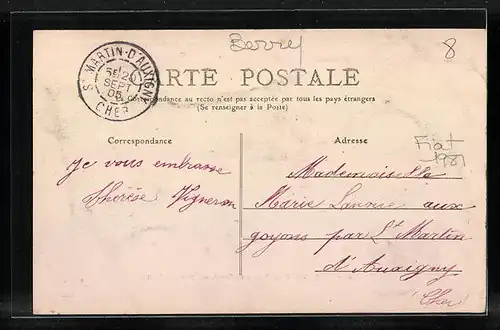 Berre
8
St MARTIN-D'AUXIGNY
20
SEPT
05
CHER
CARTE POSTALE
La Correspondance au recto n'est pas acceptée par tous les pays étrangers
(Se renseigner à la Poste)
Correspondance
Adresse
Fiat
1981
Je vous embrasse
Thérèse Vigneron
Mademoiselle
Marie aux
goyons par St Martin
d'Auxigny
Cher